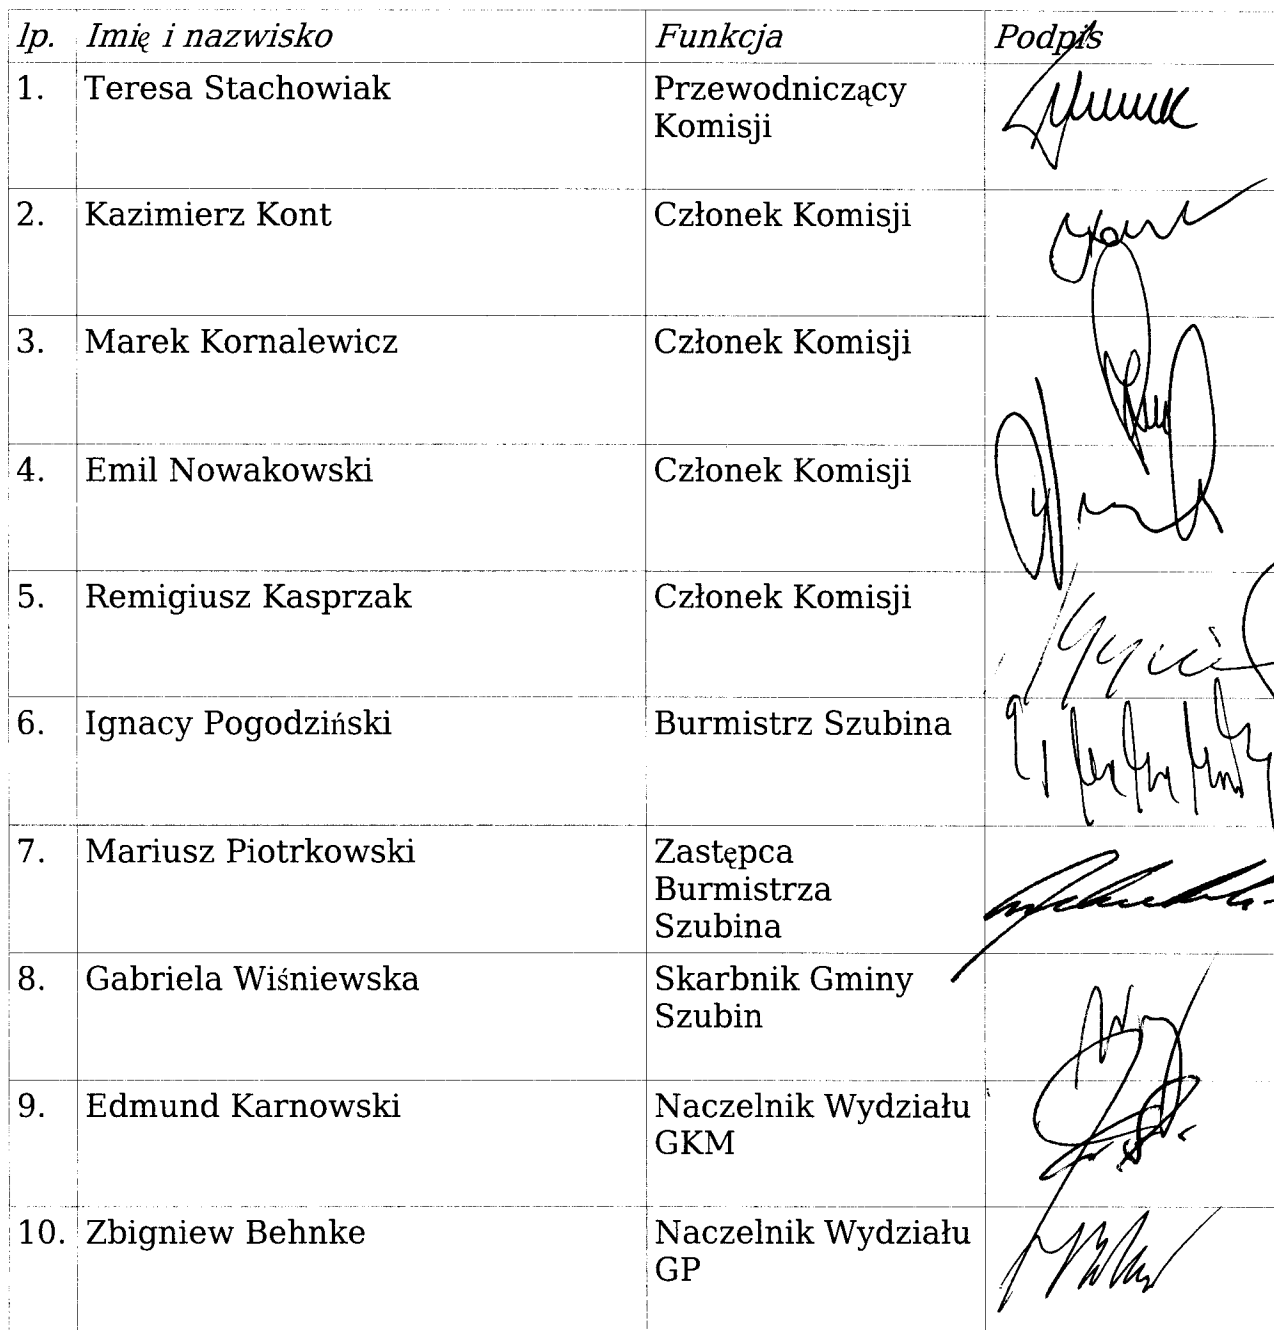 lp. Imię i nazwisko Funkcja Podpis
1. Teresa Stachowiak Przewodniczący
Komisji
2. Kazimierz Kont Członek Komisji
3. Marek Kornalewicz Członek Komisji
4. Emil Nowakowski Członek Komisji
5. Remigiusz Kasprzak Członek Komisji
6. Ignacy Pogodziński Burmistrz Szubina
7. Mariusz Piotrkowski Zastępca
Burmistrza
Szubina
8. Gabriela Wiśniewska Skarbnik Gminy
Szubin
9. Edmund Karnowski Naczelnik Wydziału
GKM
10. Zbigniew Behnke Naczelnik Wydziału
GP